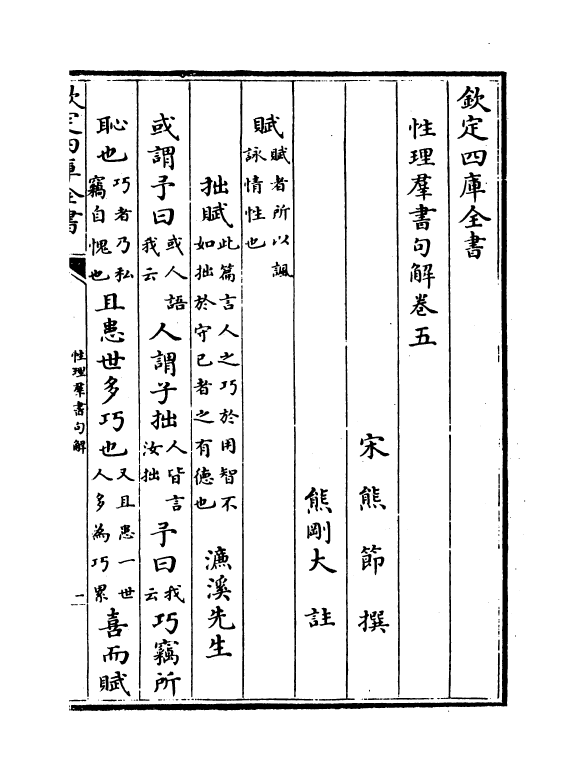 欽定四庫全書
性理羣書句解卷五
宋 熊 節 撰
熊剛大 註
賦賦者所以諷
詠情性也
拙賦此篇言人之巧於用智不
如拙於守己者之有德也
濂溪先生
或謂予曰或人語
我云人謂子拙人皆言
汝拙予曰我
云巧竊所
恥也巧者乃私
竊自愧也且患世多巧也又且患一世
人多為巧累喜而賦
欽定四庫全書
性理羣書句解
一